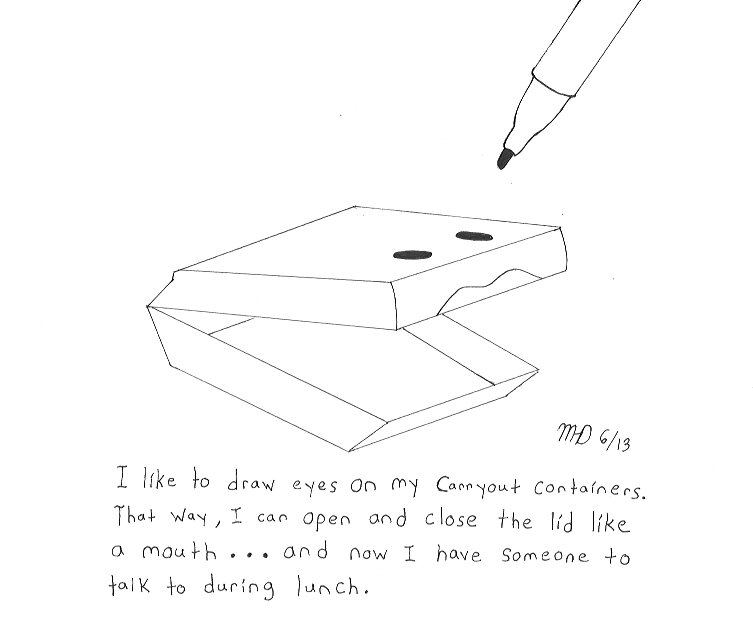 MD 6/13
I like to draw eyes on my Carryout containers.
That way, I can open and close the lid like
a mouth... and now I have someone to
talk to during lunch.